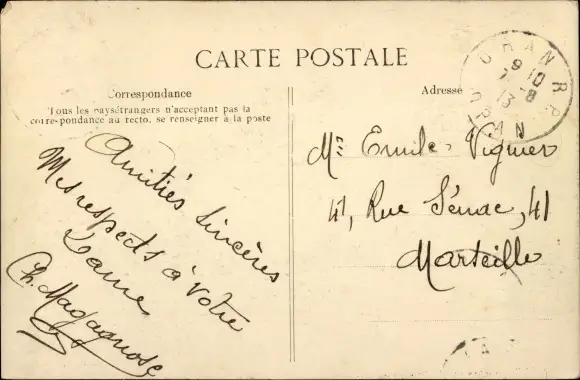 CARTE POSTALE
Correspondance
Tous les pays étrangers n'acceptant pas la
correspondance au recto, se renseigner à la poste
Adresse
ORAN R.P.
9 10
7 -8
13
ORAN
Amitiés sincères
Mes respects à votre
Dame
Ch. Magagnosc
Mr Emile Vignier
41, Rue Sénac, 41
Marseille